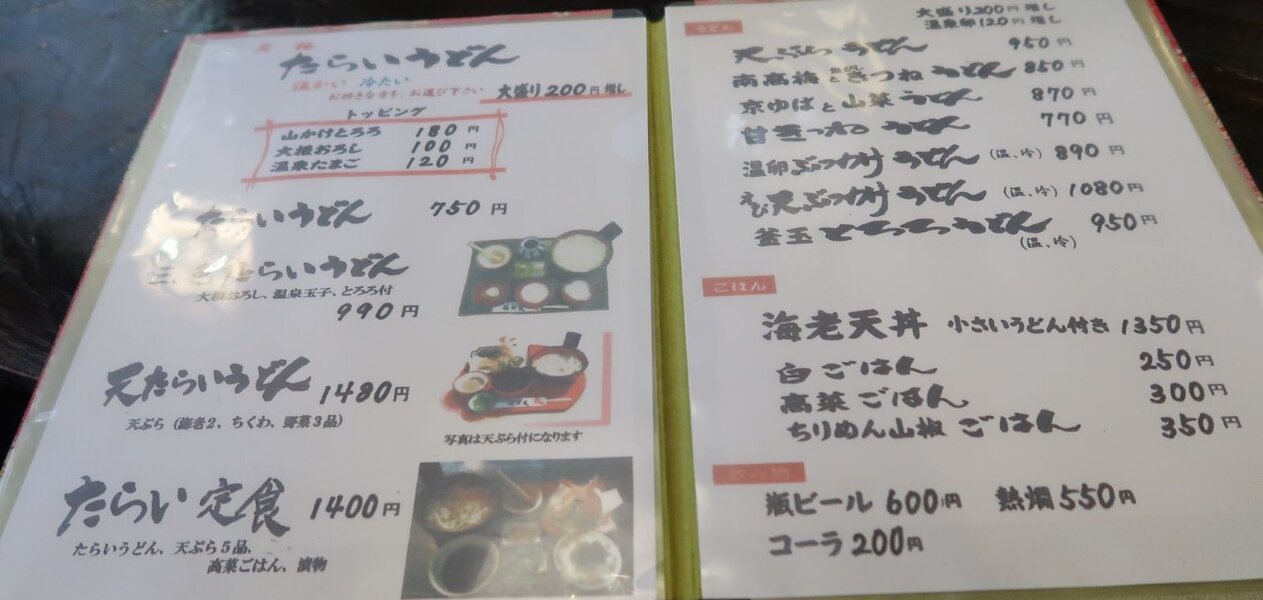 名物
たらいうどん
温かい 冷たい
お好きな方を、お選び下さい 大盛り200円増し
トッピング
山かけとろろ 180円
大根おろし 100円
温泉たまご 120円
たらいうどん 750円
三色たらいうどん
大根おろし、温泉玉子、とろろ付
990円
天たらいうどん 1480円
天ぷら（海老2、ちくわ、野菜3品）
写真は天ぷら付になります
たらい定食 1400円
たらいうどん、天ぷら5品、
高菜ごはん、漬物
うどん
大盛り200円増し
温泉卵120円増し
天ぷらうどん 950円
南高梅ときつねうどん 850円
京ゆばと山菜うどん 870円
甘きつねうどん 770円
温卵ぶっかけうどん（温、冷）890円
えび天ぶっかけうどん（温、冷）1080円
釜玉とろろうどん 950円
（温、冷）
ごはん
海老天丼 小さいうどん付き 1350円
白ごはん 250円
高菜ごはん 300円
ちりめん山椒ごはん 350円
飲み物
瓶ビール 600円 熱燗 550円
コーラ 200円